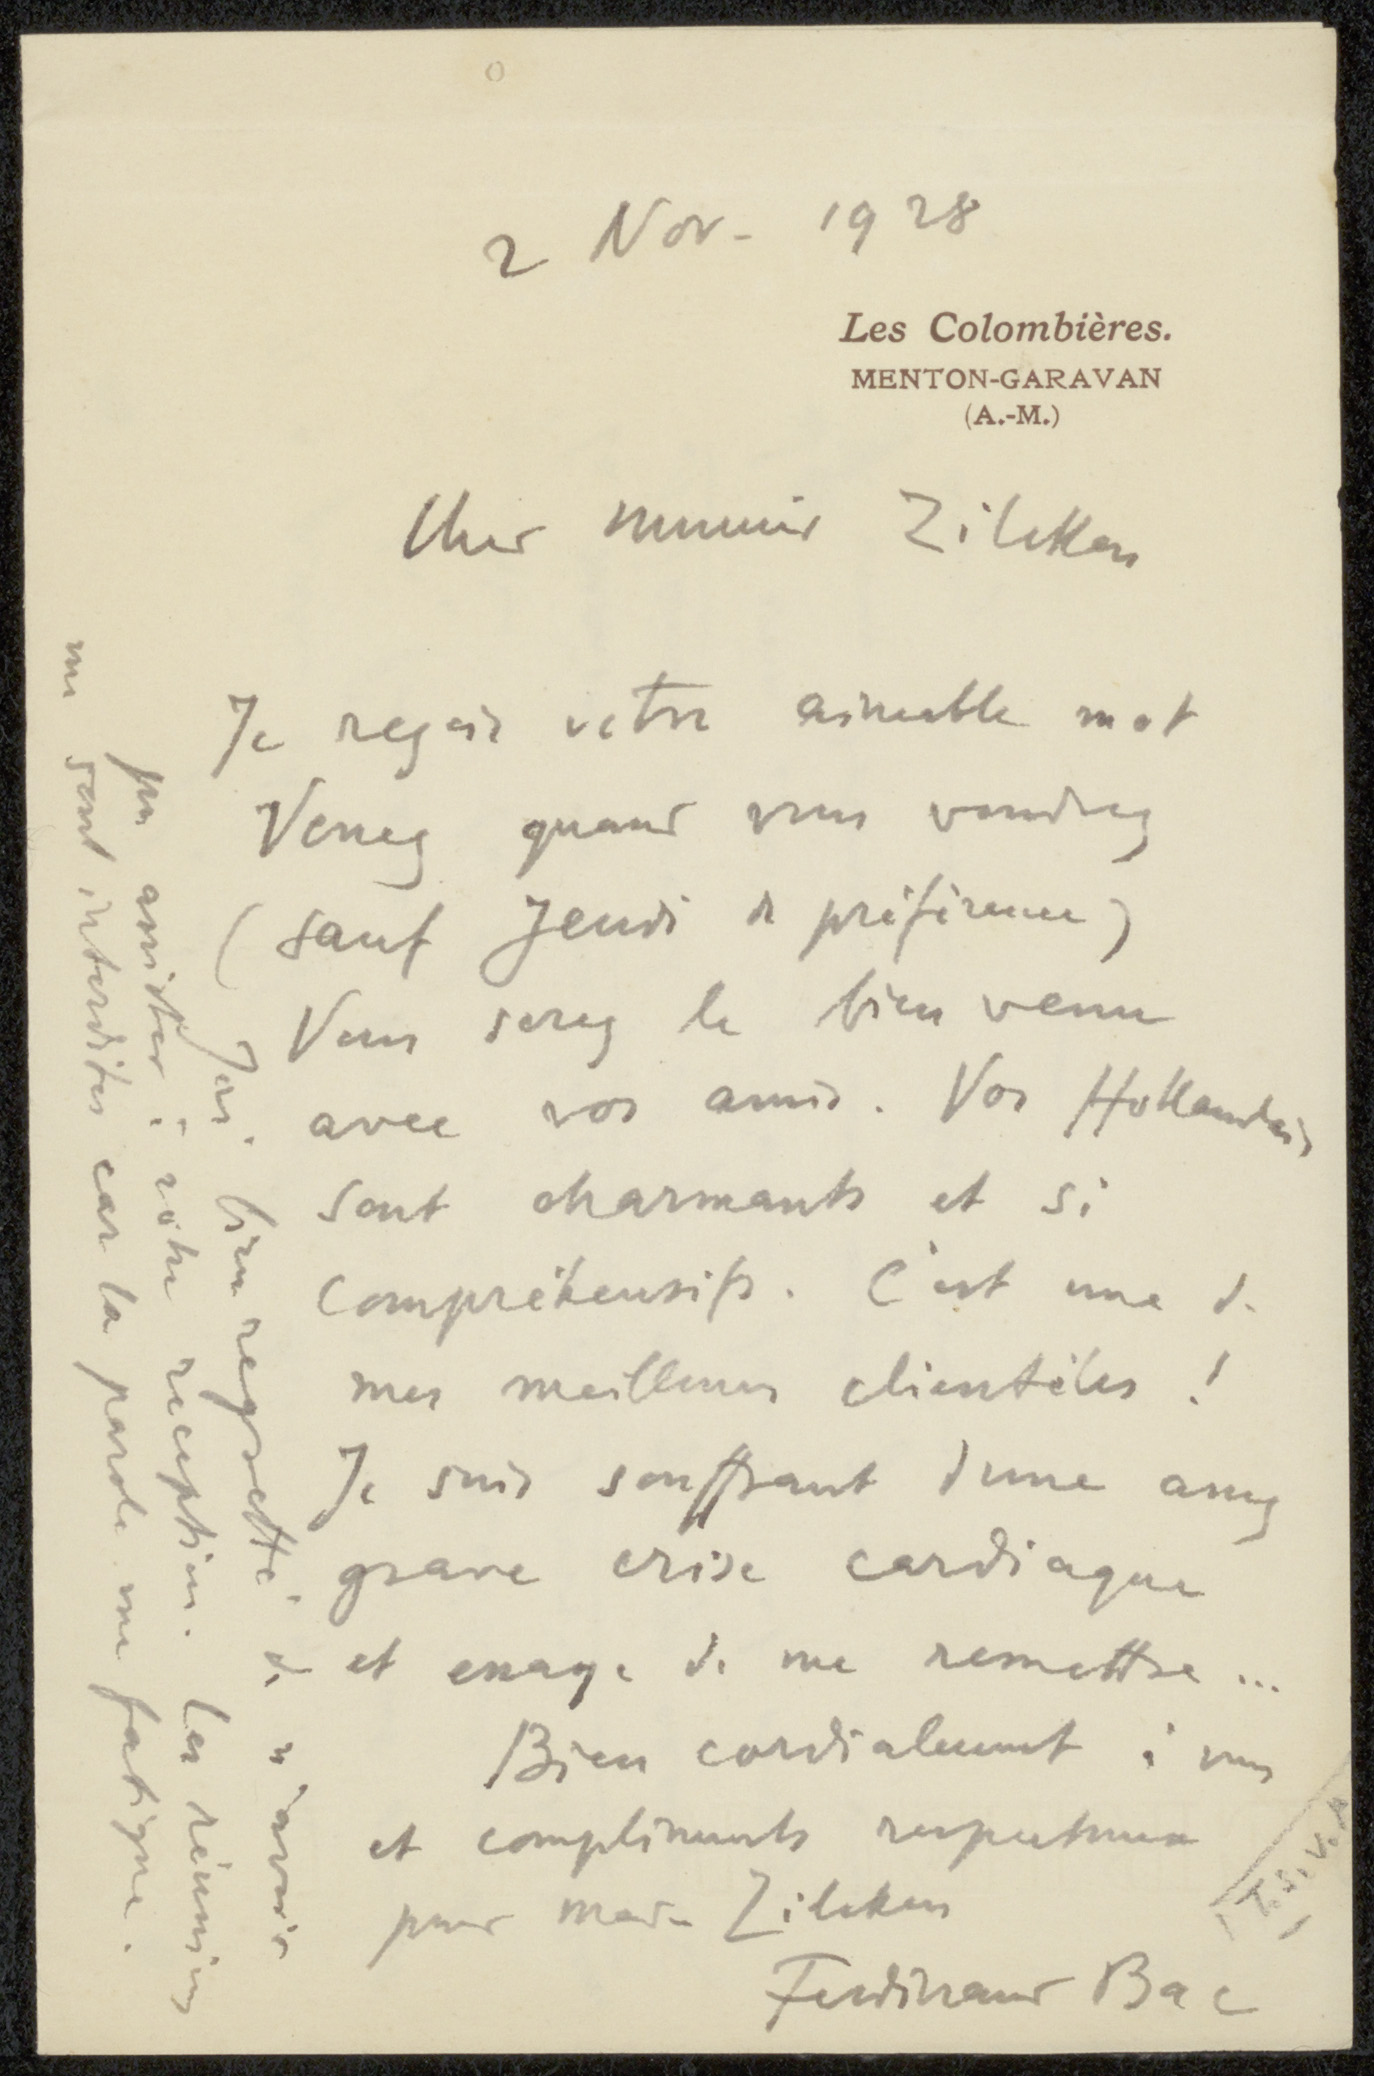 2 Nov - 1928
Les Colombières.
MENTON-GARAVAN
(A.-M.)
Cher monsieur Zilcken
Je reçois votre aimable mot
Venez quand vous voudrez
(sauf Jeudi de préférence)
Vous serez le bien venu
avec vos amis. Vos Hollandais
sont charmants et si
compréhensifs. C'est une de
mes meilleures clientèles !
Je suis souffrant d'une assez
grave crise cardiaque
et essaye de me remettre...
Bien cordialement à vous
et compliments respectueux
pour mad- Zilcken
Ferdinand Bac
(T.S.V.P.)
J'ai bien regretté de n'avoir
pu assister à votre réception. Les réunions
me sont interdites car la parole me fatigue.